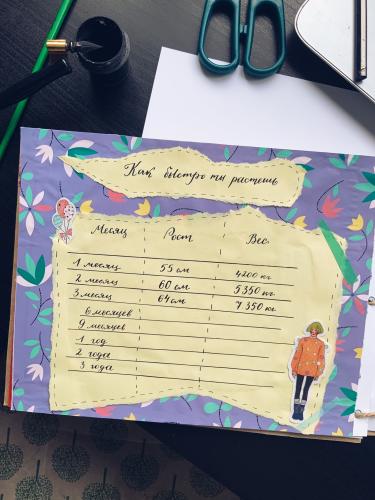 Как быстро ты растешь
Месяц Рост Вес
1 месяц 55 см 4200 кг.
2 месяц 60 см 5350 кг.
3 месяц 64 см 7.350 кг.
6 месяцев
9 месяцев
1 год
2 года
3 года